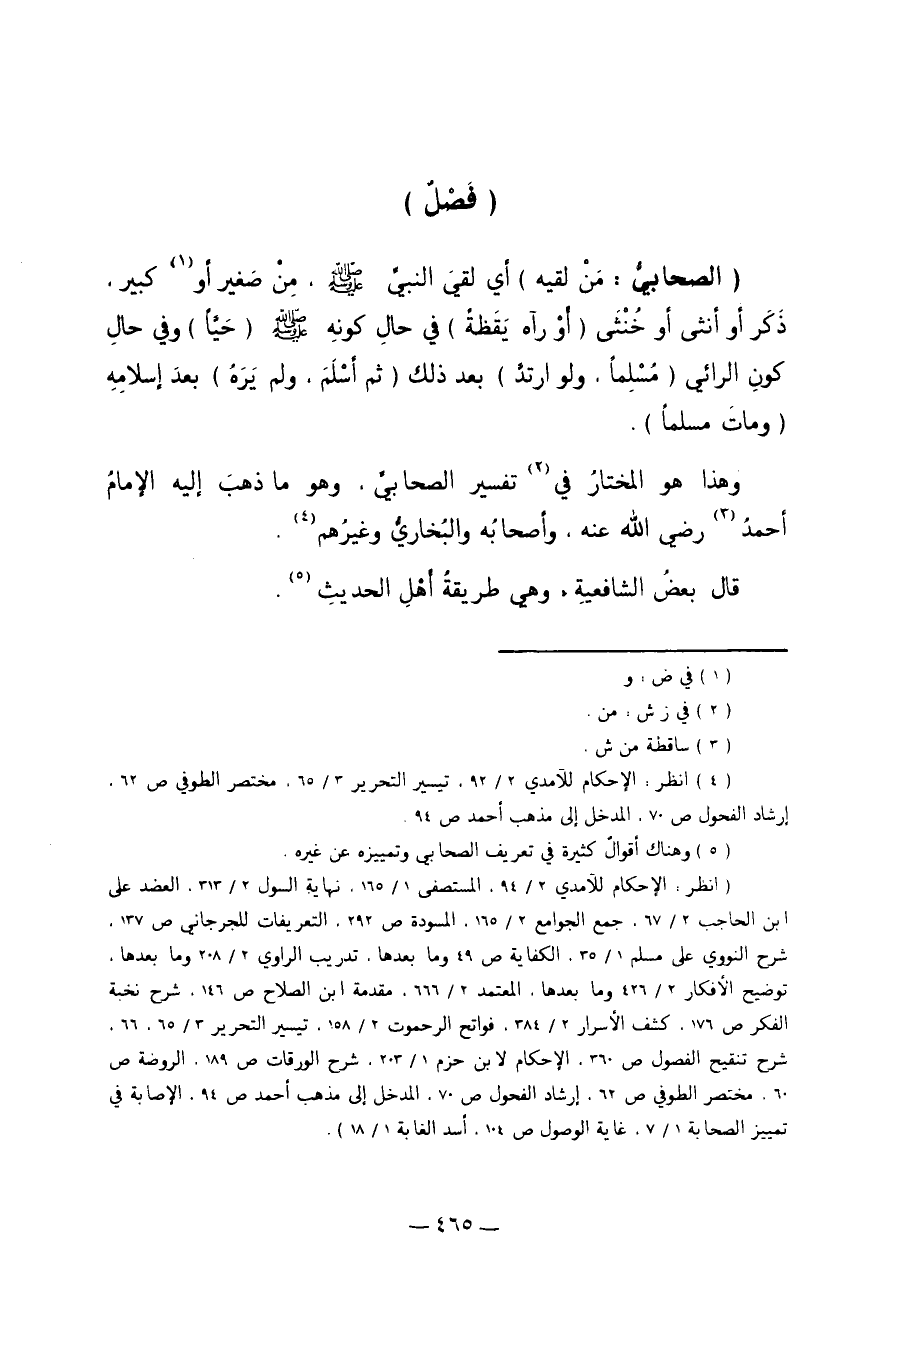 ( فَصْلٌ )
( الصحابيُّ : مَنْ لقيه ) أي لقيَ النبيَّ ﷺ ، مِنْ صَغير أو(١) كبير ،
ذَكَر أو أنثى أو خُنْثَى ( أوْ رآه يَقَظةً ) في حالِ كونهِ ﷺ ( حَيَّاً ) وفي حالِ
كونِ الرائي ( مُسْلِماً ، ولو ارتدَّ ) بعد ذلك ( ثم أسْلَمَ ، ولم يَرَهُ ) بعدَ إسلامِهِ
( وماتَ مسلماً ) .
وهذا هو المختارُ في(٢) تفسير الصحابيِّ ، وهو ما ذهبَ إليه الإمامُ
أحمدُ(٣) رضي الله عنه ، وأصحابُه والبُخاريُّ وغيرُهم(٤) .
قال بعضُ الشافعيةِ ، وهي طريقةُ أهْلِ الحديثِ(٥) .
( ١ ) في ض : و
( ٢ ) في ز ش : من .
( ٣ ) ساقطة من ش .
( ٤ ) انظر : الإحكام للآمدي ٢ / ٩٢ ، تيسير التحرير ٣ / ٦٥ ، مختصر الطوفي ص ٦٢ ،
إرشاد الفحول ص ٧٠ ، المدخل إلى مذهب أحمد ص ٩٤ .
( ٥ ) وهناك أقوالٌ كثيرة في تعريف الصحابي وتمييزه عن غيره .
( انظر : الإحكام للآمدي ٢ / ٩٤ ، المستصفى ١ / ١٦٥ ، نهاية السول ٢ / ٣١٣ ، العضد على
ابن الحاجب ٢ / ٦٧ ، جمع الجوامع ٢ / ١٦٥ ، المسودة ص ٢٩٢ ، التعريفات للجرجاني ص ١٣٧ ،
شرح النووي على مسلم ١ / ٣٥ ، الكفاية ص ٤٩ وما بعدها ، تدريب الراوي ٢ / ٢٠٨ وما بعدها ،
توضيح الأفكار ٢ / ٤٢٦ وما بعدها ، المعتمد ٢ / ٦٦٦ ، مقدمة ابن الصلاح ص ١٤٦ ، شرح نخبة
الفكر ص ١٧٦ ، كشف الأسرار ٢ / ٣٨٤ ، فواتح الرحموت ٢ / ١٥٨ ، تيسير التحرير ٣ / ٦٥ ، ٦٦ ،
شرح تنقيح الفصول ص ٣٦٠ ، الإحكام لابن حزم ١ / ٢٠٣ ، شرح الورقات ص ١٨٩ ، الروضة ص
٦٠ ، مختصر الطوفي ص ٦٢ ، إرشاد الفحول ص ٧٠ ، المدخل إلى مذهب أحمد ص ٩٤ ، الإصابة في
تمييز الصحابة ١ / ٧ ، غاية الوصول ص ١٠٤ ، أسد الغابة ١ / ١٨ ) .
— ٤٦٥ —